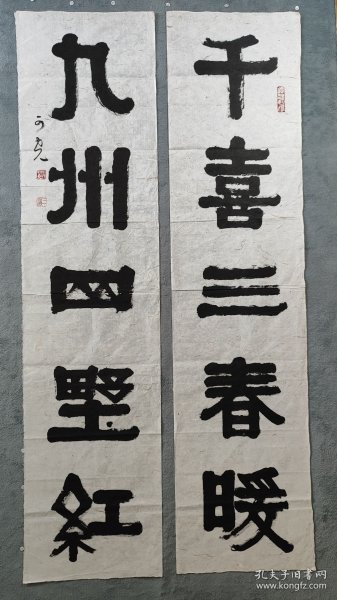 千喜三春暖
九州四野紅
孔夫子旧书网
www.kongfz.com